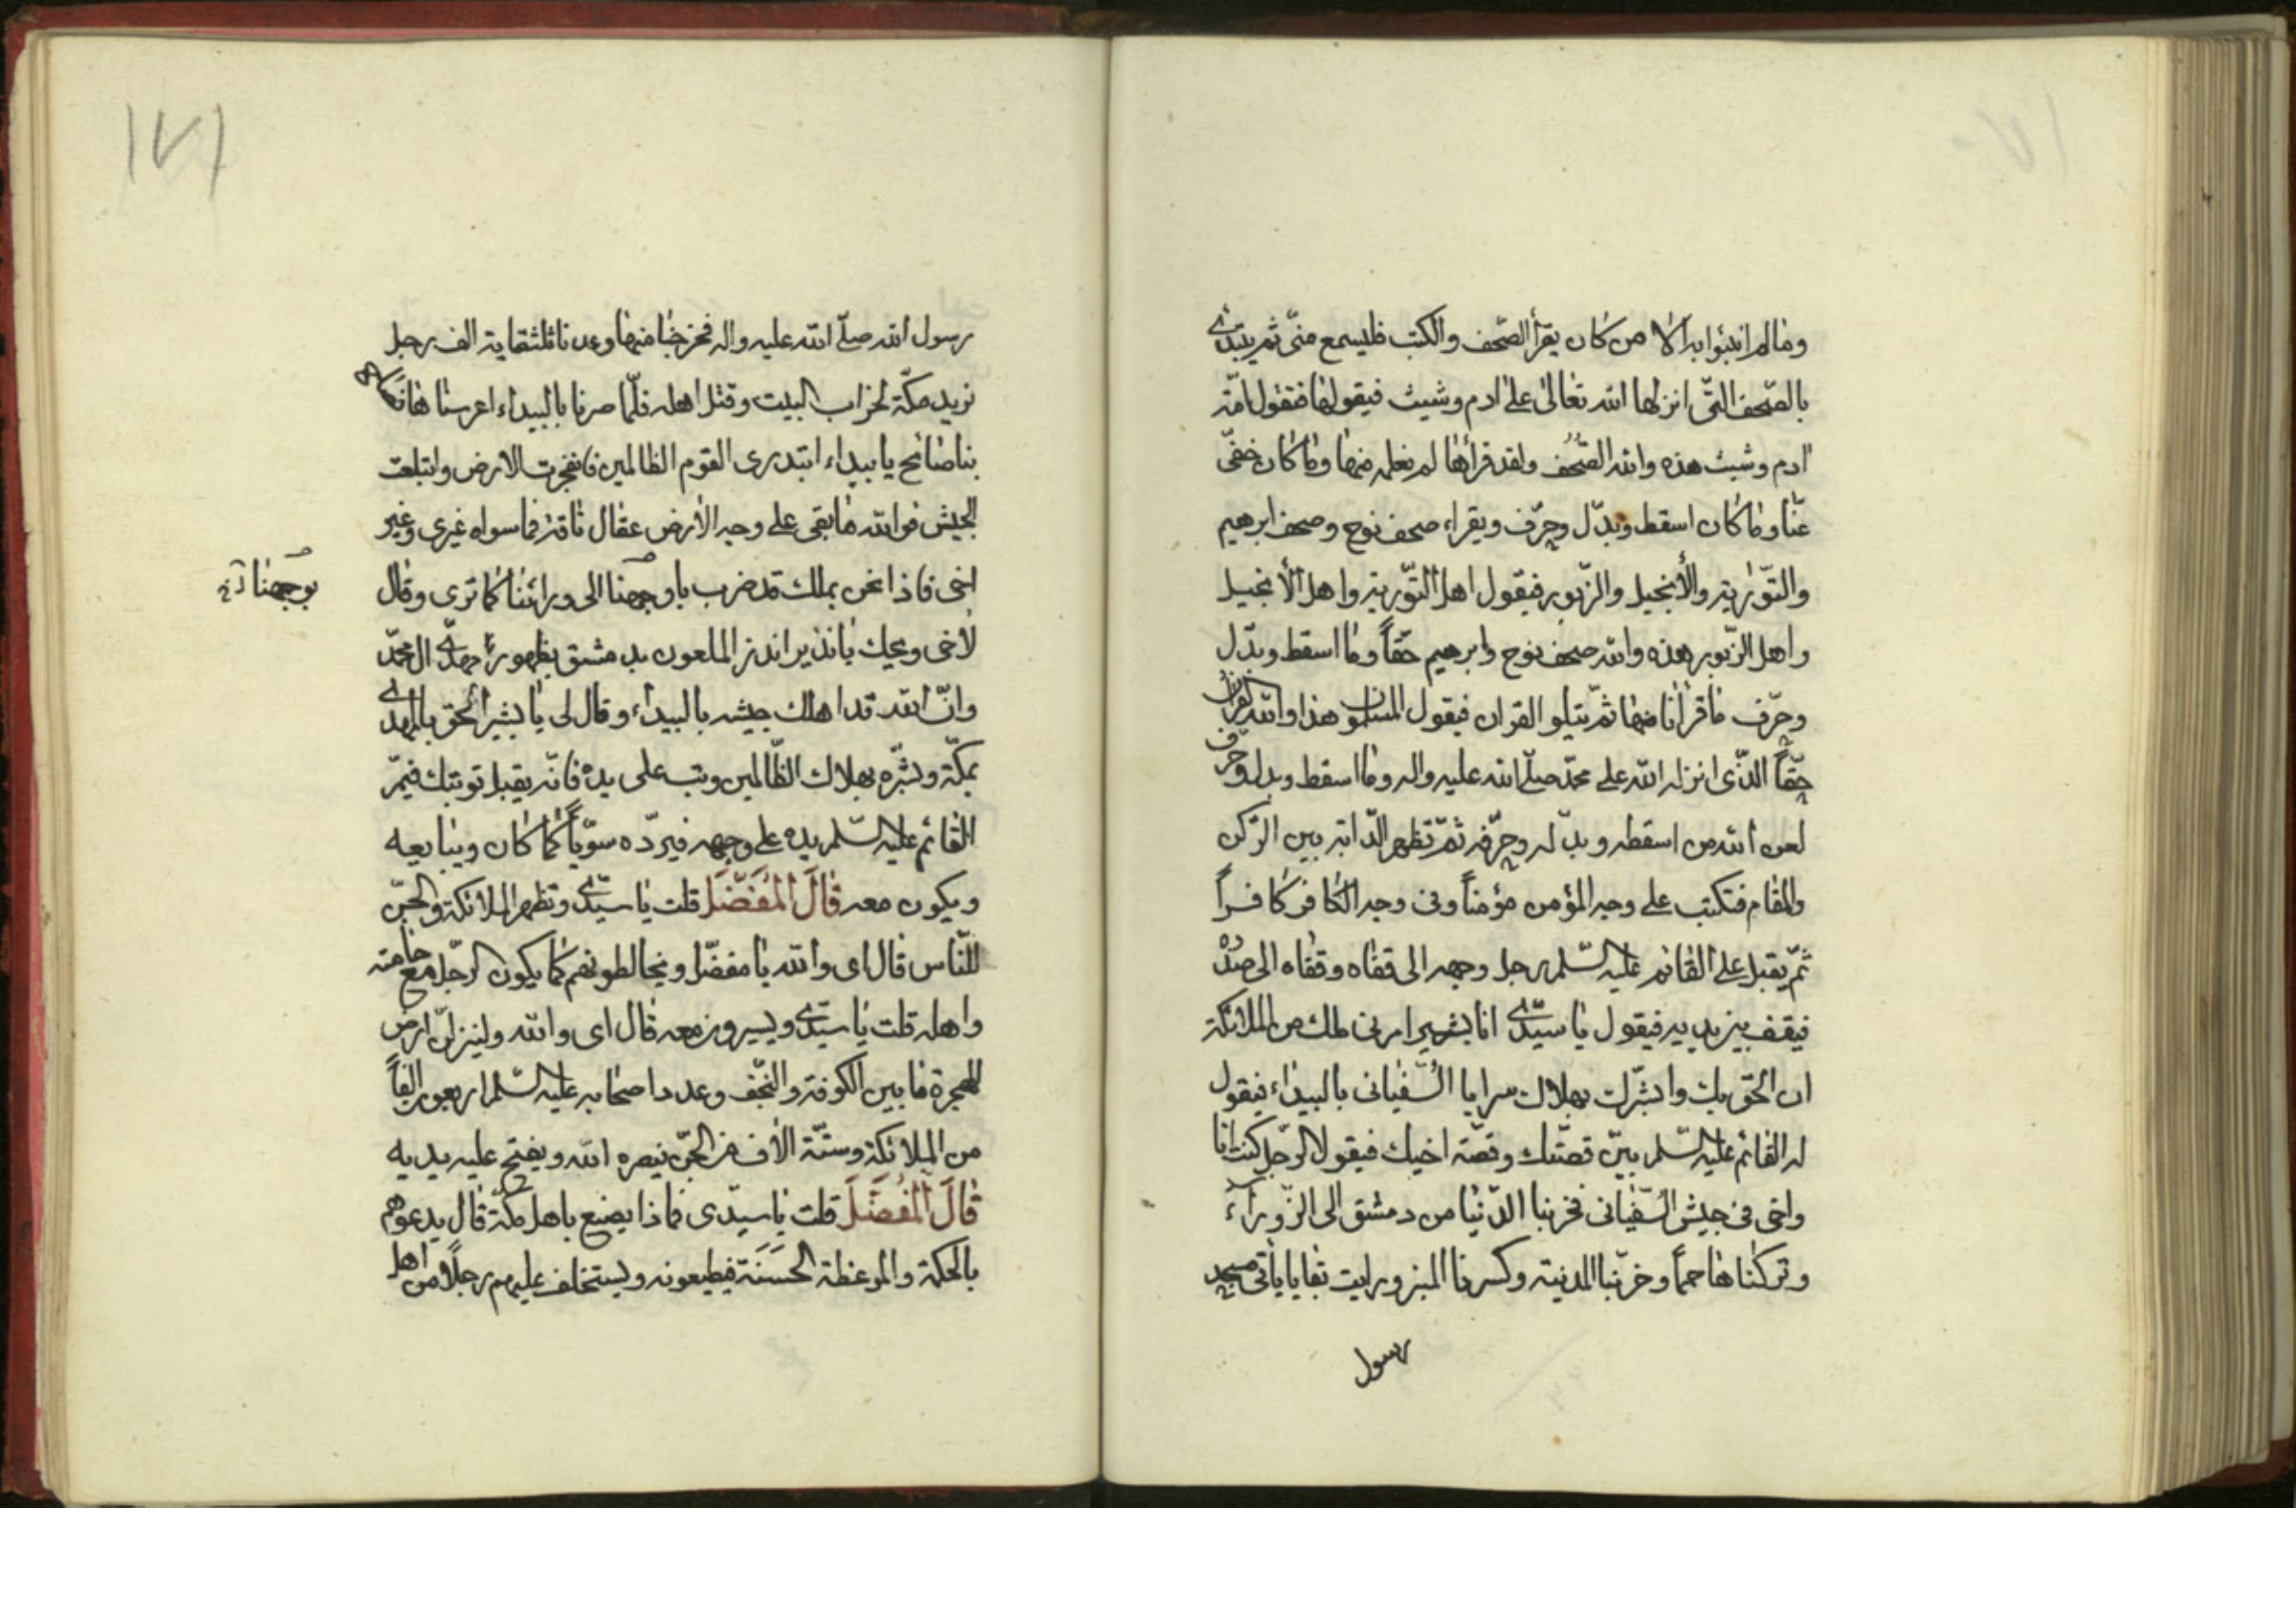 وما لم انبئوا به الا من كان يقرأ الصّحف والكتب فليسمع منّى ثم يبتدئ
بالصّحف التّى انزلها الله تعالى على ادم وشيث فيقولها فتقول امّة
ادم وشيث هذه والله الصّحف ولقد قرأها لم نعلمه منها وما كان خفى
عنّا وما كان اسقط وبدّل وحرّف ويقراء صحف نوح وصحف ابرهيم
والتّورية والأنجيل والزّبور فيقول اهل التّورية واهل الأنجيل
واهل الزّبور هذه والله صحف نوح وابرهيم حقّاً وما اسقط وبدّل
وحرّف ما قرأنا منها ثمّ يتلو القران فيقول المسلمون هذا والله القران
حقّاً الذّى انزله الله على محمّد صلّى الله عليه واله وما اسقط وبدل وحرّف
لعن الله من اسقطه وبدّله وحرّفه ثمّ تظهر الدّابة بين الرّكن
والمقام فتكتب على وجه المؤمن مؤمناً وفى وجه الكافر كافراً
ثمّ يقبل على القائم عليه السّلم رجل وجهه الى قفاه وقفاه الى صدره
فيقف بين يديه فيقول يا سيّدى انا بشير امرنى ملك من الملائكة
ان الحق بك وابشّرك بهلاك سرايا السّفيانى بالبيداء فيقول
له القائم عليه السّلم بيّن قصّتك وقصّة اخيك فيقول الرّجل كنت انا
واخى فى جيش السّفيانى فخربنا الدّنيا من دمشق الى الزّوراء
وتركناها حمماً وخرّبنا المدنية وكسرنا المنبر ورايت بقايا ياتى مسجد
رسول
١٧١
رسول الله صلّى الله عليه واله فخرجنا منها وعدنا ثلثمائة الف رجل
نريد مكّة لخراب البيت وقتل اهله فلمّا صرنا بالبيداء اعرسنا هناك
بنا صائح يا بيداء ابتدرى القوم الظالمين فانفجرت الارض وابتلعت
الجيش فوالله ما بقى على وجه الأرض عقال ناقة فما سواه غيرى وغير
اخى فاذا نحن بملك قد ضرب باوجهنا الى ورائنا كما ترى وقال
بوجهنا
لأخى ويحك يا نذير انذر الملعون بدمشق بظهور مهدىّ ال محمّد
وانّ الله قد اهلك جيشه بالبيداء وقال لى يا بشير الحق بالمهدى
بمكّة وبشّره بهلاك الظّالمين وتب على يده فانّه يقبل توبتك فيمرّ
القائم عليه السّلم يده على وجهه فيردّه سويّاً كما كان ويبايعه
ويكون معه قَالَ الْمُفَضَّلَ قلت يا سيّدى وتظهر الملائكة والجنّ
للنّاس قال اى والله يا مفضّل ويخالطونهم كما يكون الرّجل مع حامته
واهله قلت يا سيّدى ويسيرون معه قال اى والله ولينزلنّ ارض
الهجرة ما بين الكوفة والنّجف وعدد اصحابه عليه السّلم اربعون الفاً
من الملائكة وستّة الأف من الجنّ ينصره الله ويفتح عليه يديه
قَالَ الْمُفَضَّلَ قلت يا سيّدى فما ذا يصنع باهل مكّة قال يدعوهم
بالحكمة والموعظة الحَسَنَة فيطيعونه ويستخلف عليهم رجلاً من اهل